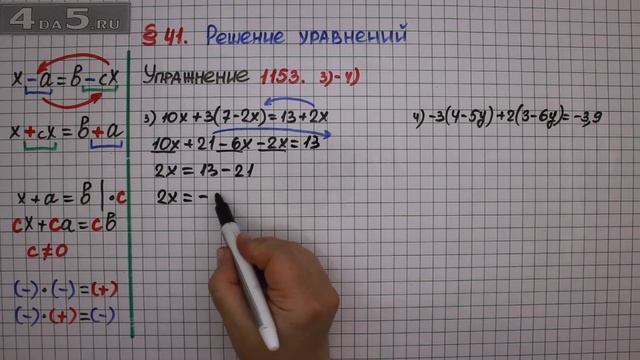 4DA5.RU
§ 41. Решение уравнений
Упражнение 1153. 3)-4)
x-a=в-cx
x+cx=в+a
x+a=в |·c
cx+ca=cв
c≠0
(-)·(-)=(+)
(-)·(+)=(-)
3) 10x+3(7-2x)=13+2x
10x+21-6x-2x=13
2x=13-21
2x=-
4) -3(4-5y)+2(3-6y)=-3,9